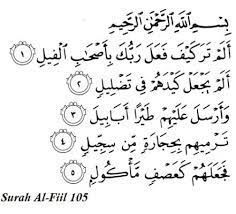 بِسْمِ اللَّهِ الرَّحْمَٰنِ الرَّحِيمِ
أَلَمْ تَرَ كَيْفَ فَعَلَ رَبُّكَ بِأَصْحَابِ الْفِيلِ ١
أَلَمْ يَجْعَلْ كَيْدَهُمْ فِي تَضْلِيلٍ ٢
وَأَرْسَلَ عَلَيْهِمْ طَيْرًا أَبَابِيلَ ٣
تَرْمِيهِمْ بِحِجَارَةٍ مِنْ سِجِّيلٍ ٤
فَجَعَلَهُمْ كَعَصْفٍ مَأْكُولٍ ٥
Surah Al-Fiil 105